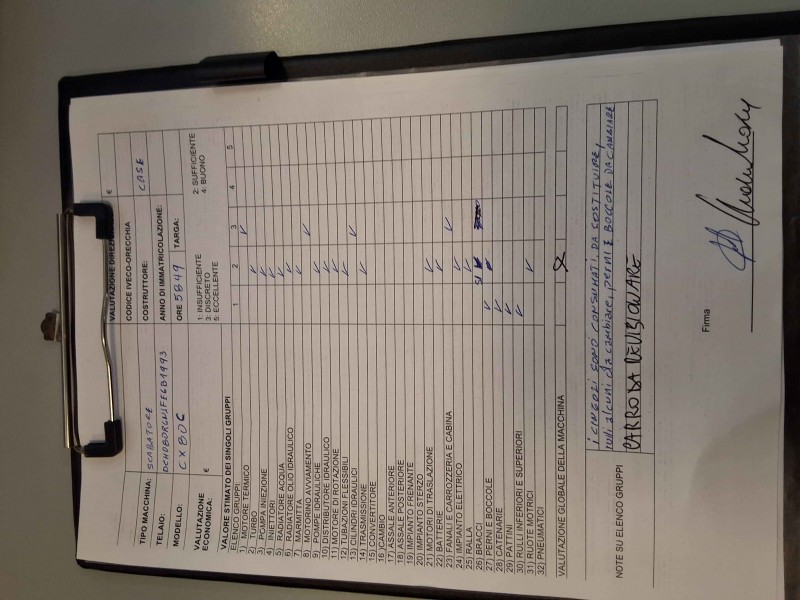 VALUTAZIONE DIREZ €
CODICE IVECO-ORECCHIA
TIPO MACCHINA: SCAVATORE COSTRUTTORE: CASE
TELAIO: ANNO DI IMMATRICOLAZIONE:
MODELLO: CX80C ORE 5849 TARGA:
VALUTAZIONE ECONOMICA: €
1: INSUFFICIENTE 2: SUFFICIENTE
3: DISCRETO 4: BUONO
5: ECCELLENTE
VALORE STIMATO DEI SINGOLI GRUPPI
ELENCO GRUPPI 1 2 3 4 5
1) MOTORE TERMICO
2) TURBO
3) POMPA INIEZIONE
4) INIETTORI
5) RADIATORE ACQUA
6) RADIATORE OLIO IDRAULICO
7) MARMITTA
8) MOTORINO AVVIAMENTO
9) POMPE IDRAULICHE
10) DISTRIBUTORE IDRAULICO
11) MOTORE DI ROTAZIONE
12) TUBAZIONI FLESSIBILI
13) CILINDRI IDRAULICI
14) TRASMISSIONE
15) CONVERTITORE
16) CAMBIO
17) ASSALE ANTERIORE
18) ASSALE POSTERIORE
19) IMPIANTO FRENANTE
20) IMPIANTO STERZO
21) MOTORI DI TRASLAZIONE
22) BATTERIE
23) FANALI E CARROZZERIA E CABINA
24) IMPIANTO ELETTRICO
25) RALLA
26) BRACCI SI
27) PERNI E BOCCOLE
28) CATENARIE
29) PATTINI
30) RULLI INFERIORI E SUPERIORI
31) RUOTE MOTRICI
32) PNEUMATICI
VALUTAZIONE GLOBALE DELLA MACCHINA X
i CINGOLI SONO CONSUMATI, DA SOSTITUIRE,
rulli alcuni da cambiare, perni E BOCCOLE DA CAMBIARE
NOTE SU ELENCO GRUPPI CARRO DA REVISIONARE
Firma